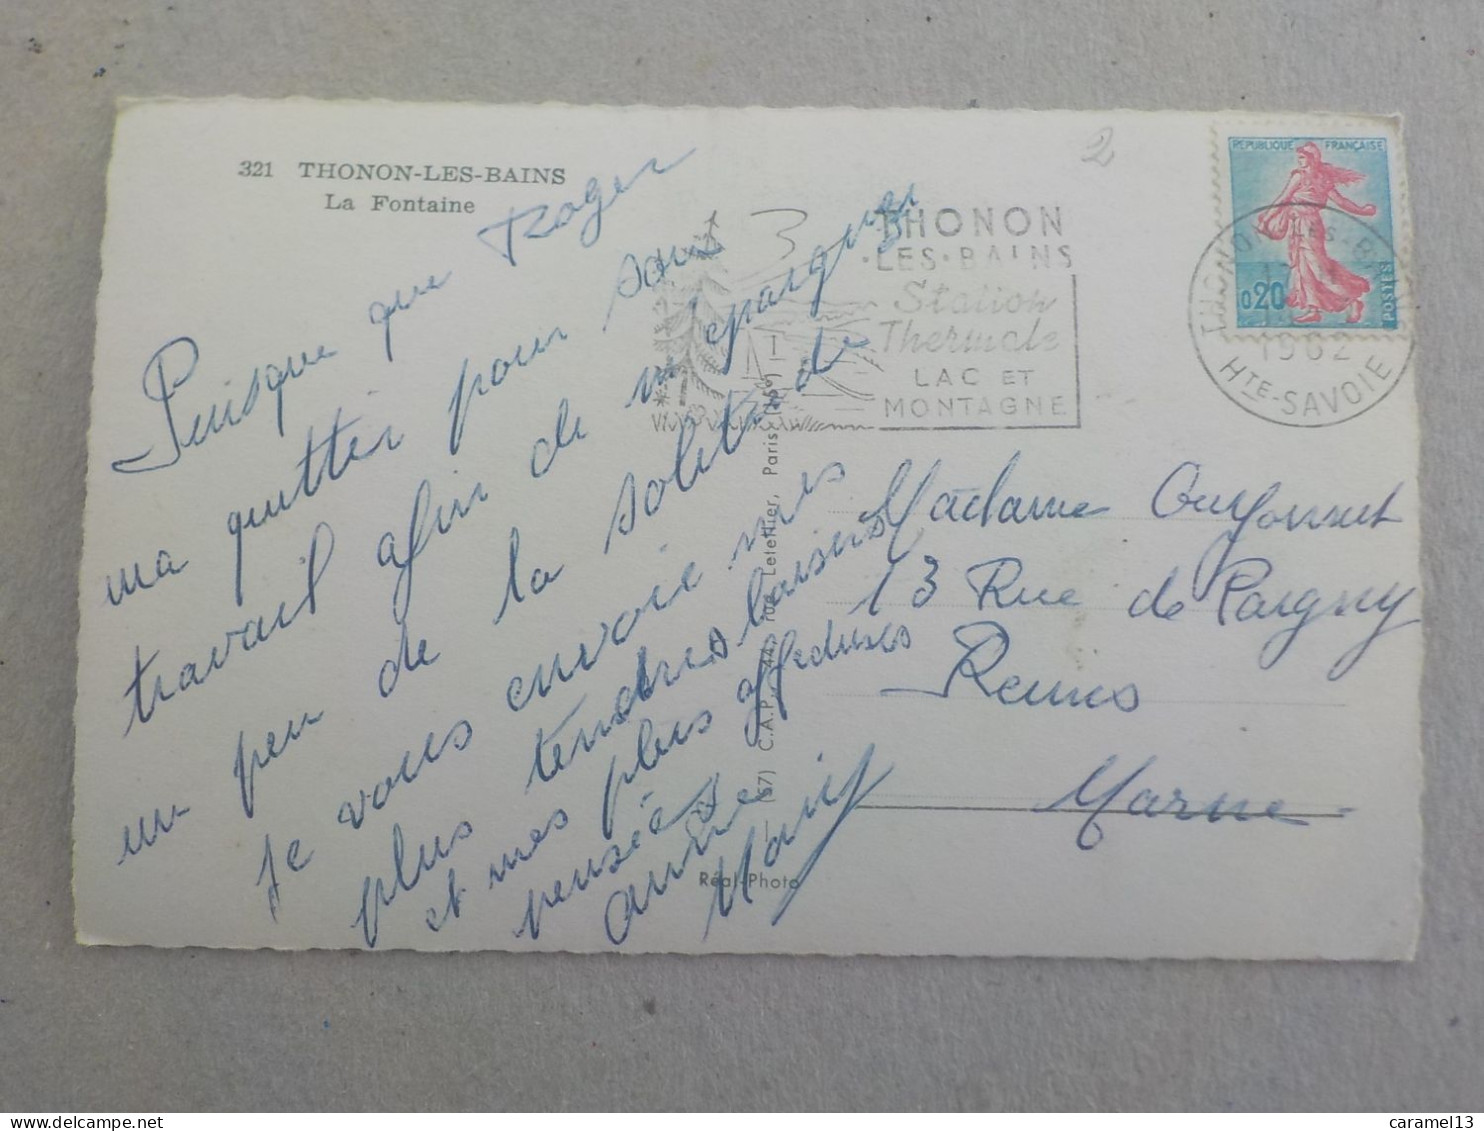 321 THONON-LES-BAINS
La Fontaine
2
REPUBLIQUE FRANÇAISE
0,20
POSTES
THONON-LES-BAINS
1962
HTE-SAVOIE
THONON
·LES·BAINS
Station
Thermale
LAC ET
MONTAGNE
Puisque que Roger
ma quitter pour sont
travail afin de m'épargner
un peu de la solitude
Je vous envoie mes
plus tendres baisers
et mes plus affectueuses
pensées
Madame
13 Rue de Pargny
Reims
Marne
(67) C.A.P., 44, rue Letellier, Paris (15e)
Réal-Photo
caramel13